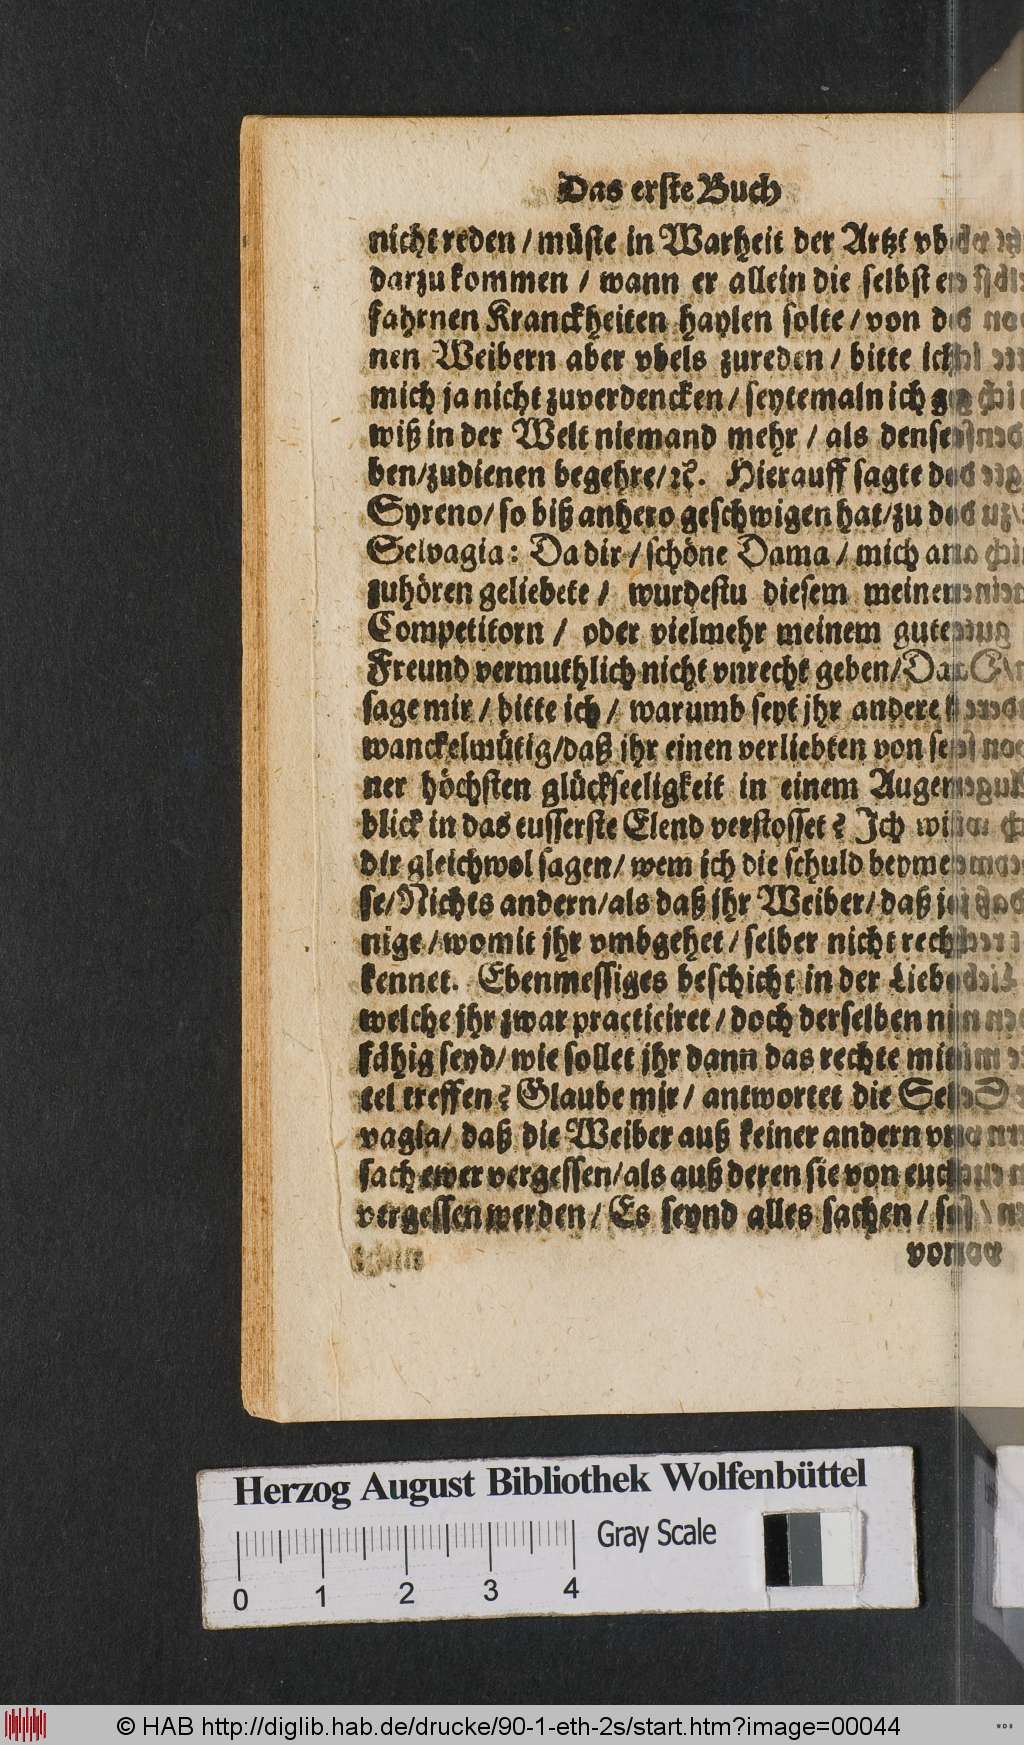 Das erste Buch
nicht reden / müste in Warheit der Artzt vbel
darzu kommen / wann er allein die selbst er
fahrnen Kranckheiten haylen solte / von de
nen Weibern aber vbels zureden / bitte ich
mich ja nicht zuverdencken / seytemaln ich ge
wiß in der Welt niemand mehr / als densel
ben/zudienen begehre/ꝛc. Hierauff sagte der
Syreno/ so biß anhero geschwigen hat/zu der
Selvagia: Da dir / schöne Dama / mich an
zuhören geliebete / wurdestu diesem meinem
Competitorn / oder vielmehr meinem guten
Freund vermuthlich nicht vnrecht geben/
sage mir / bitte ich / warumb seyt jhr andere
wanckelmütig/daß jhr einen verliebten von sey
ner höchsten glückseeligkeit in einem Augen
blick in das eusserste Elend verstosset? Ich wil
dir gleichwol sagen/ wem ich die schuld beyme
se/Nichts andern/als daß jhr Weiber/ daß je
nige / womit jhr vmbgehet / selber nicht recht
kennet. Ebenmessiges beschicht in der Liebe
welche jhr zwar practiciret / doch derselben nit
fähig seyd/ wie sollet jhr dann das rechte mit
tel treffen? Glaube mir / antwortet die Sel
vagia/ daß die Weiber auß keiner andern vr
sach ewer vergessen/als auß deren sie von euch
vergessen werden / Es seynd alles sachen / so
von
Herzog August Bibliothek Wolfenbüttel
Gray Scale
0 1 2 3 4
© HAB http://diglib.hab.de/drucke/90-1-eth-2s/start.htm?image=00044